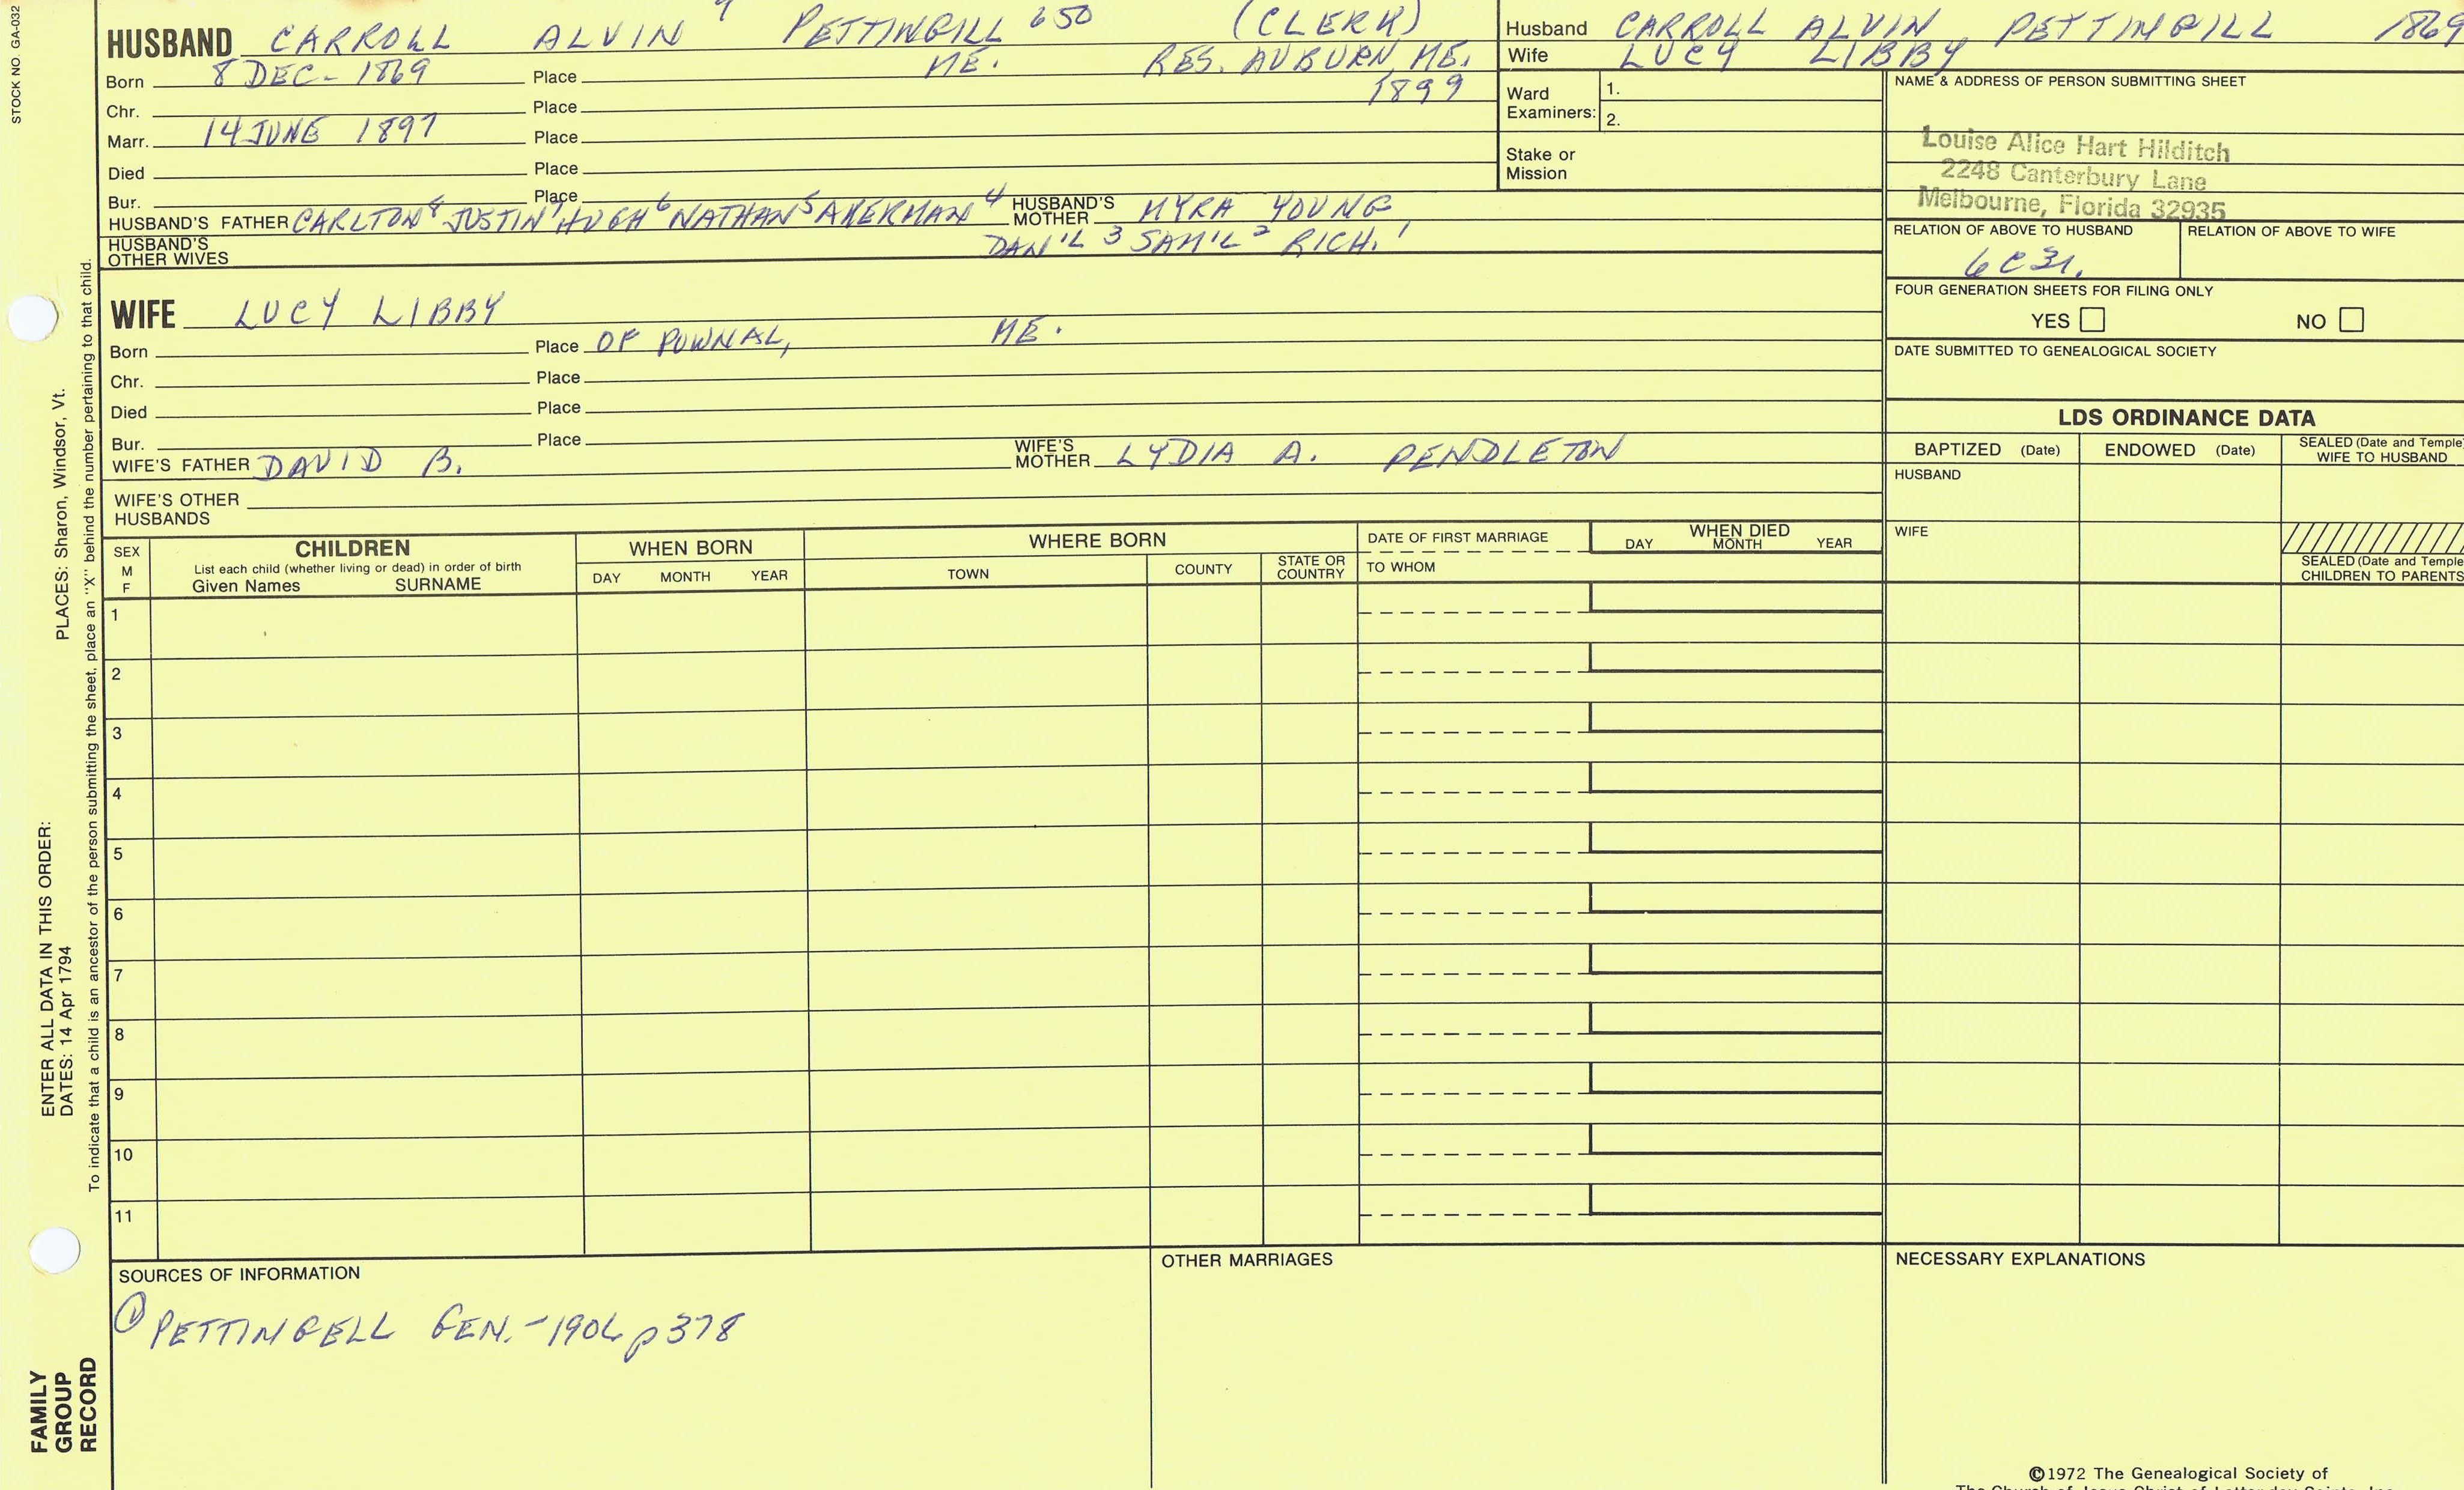 STOCK NO. GA-032
HUSBAND CARROLL ALVIN 9 PETTINGILL 650 (CLERK)
Born 8 DEC- 1869 Place ME. RES. AUBURN ME.
Chr. Place 1899
Marr. 14 JUNE 1897 Place
Died Place
Bur. Place
HUSBAND'S FATHER CARLTON 8 JUSTIN 7 HUGH 6 NATHAN 5 AKERMAN 4 HUSBAND'S MOTHER MYRA YOUNG
HUSBAND'S OTHER WIVES DAN'L 3 SAM'L 2 RICH. 1
Husband CARROLL ALVIN PETTINGILL 1869
Wife LUCY LIBBY
Ward Examiners: 1.
2.
Stake or Mission
NAME & ADDRESS OF PERSON SUBMITTING SHEET
Louise Alice Hart Hilditch
2248 Canterbury Lane
Melbourne, Florida 32935
RELATION OF ABOVE TO HUSBAND RELATION OF ABOVE TO WIFE
FOUR GENERATION SHEETS FOR FILING ONLY
YES NO
DATE SUBMITTED TO GENEALOGICAL SOCIETY
WIFE LUCY LIBBY
Born Place OF POWNAL, ME.
Chr. Place
Died Place
Bur. Place
WIFE'S FATHER DAVID B. WIFE'S MOTHER LYDIA A. PENDLETON
WIFE'S OTHER HUSBANDS
LDS ORDINANCE DATA
BAPTIZED (Date) ENDOWED (Date) SEALED (Date and Temple) WIFE TO HUSBAND
HUSBAND
WIFE
SEALED (Date and Temple CHILDREN TO PARENTS
SEX M F CHILDREN WHEN BORN WHERE BORN DATE OF FIRST MARRIAGE WHEN DIED
List each child (whether living or dead) in order of birth
Given Names SURNAME DAY MONTH YEAR TOWN COUNTY STATE OR COUNTRY TO WHOM DAY MONTH YEAR
1
2
3
4
5
6
7
8
9
10
11
SOURCES OF INFORMATION
① PETTINGELL GEN.-1906 p378
OTHER MARRIAGES
NECESSARY EXPLANATIONS
©1972 The Genealogical Society of
ENTER ALL DATA IN THIS ORDER:
DATES: 14 Apr 1794 PLACES: Sharon, Windsor, Vt.
To indicate that a child is an ancestor of the person submitting the sheet, place an "X" behind the number pertaining to that child.
FAMILY
GROUP
RECORD